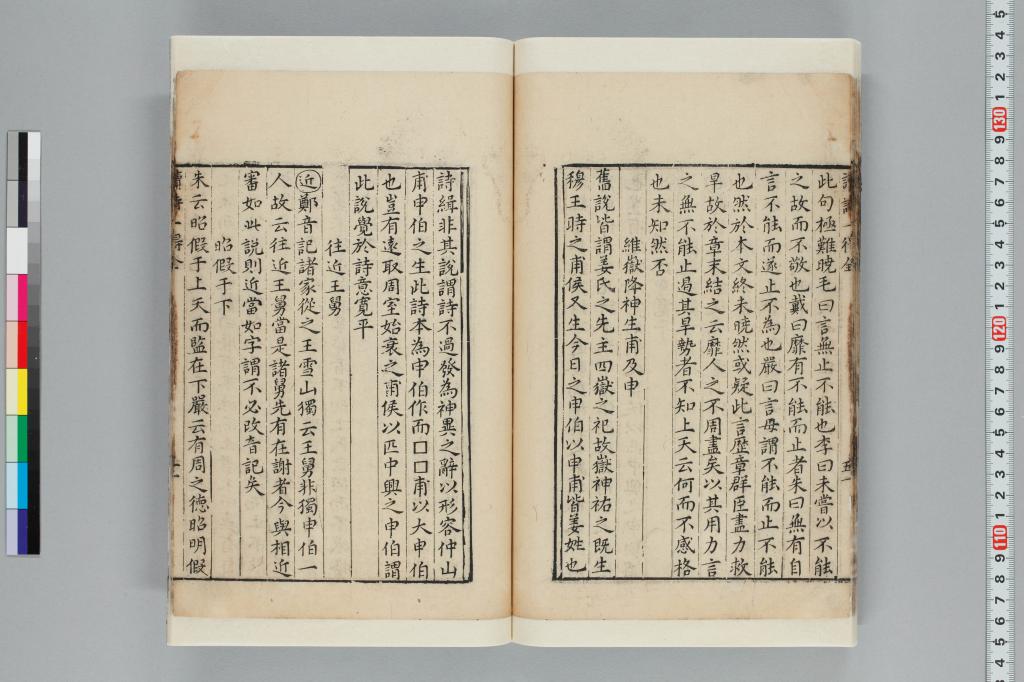 此句極難曉毛曰言無止不能也李曰未嘗以不能
之故而不敬也戴曰靡有不能而止者朱曰無有自
言不能而遂止不為也嚴曰言毋謂不能而止不能
也然於本文終未曉然或疑此言歷章群臣盡力救
旱故於章末結之云靡人之不周盡矣以其用力言
之無不能止過其旱勢者不知上天云何而不感格
也未知然否
維嶽降神生甫及申
舊說皆謂姜氏之先主四嶽之祀故嶽神祐之既生
穆王時之甫侯又生今日之申伯以申甫皆姜姓也
詩緝非其說謂詩不過發為神異之辭以形容仲山
甫申伯之生此詩本為申伯作而口口甫以大申伯
也豈有遠取周室始衰之甫侯以匹中興之申伯謂
此說覺於詩意寬平
往近王舅
近鄭音記諸家從之王雪山獨云王舅非獨申伯一
人故云往近王舅當是諸舅先有在謝者今與相近
審如此說則近當如字謂不必改音記矣
昭假于下
朱云昭假于上天而監在下嚴云有周之德昭明假